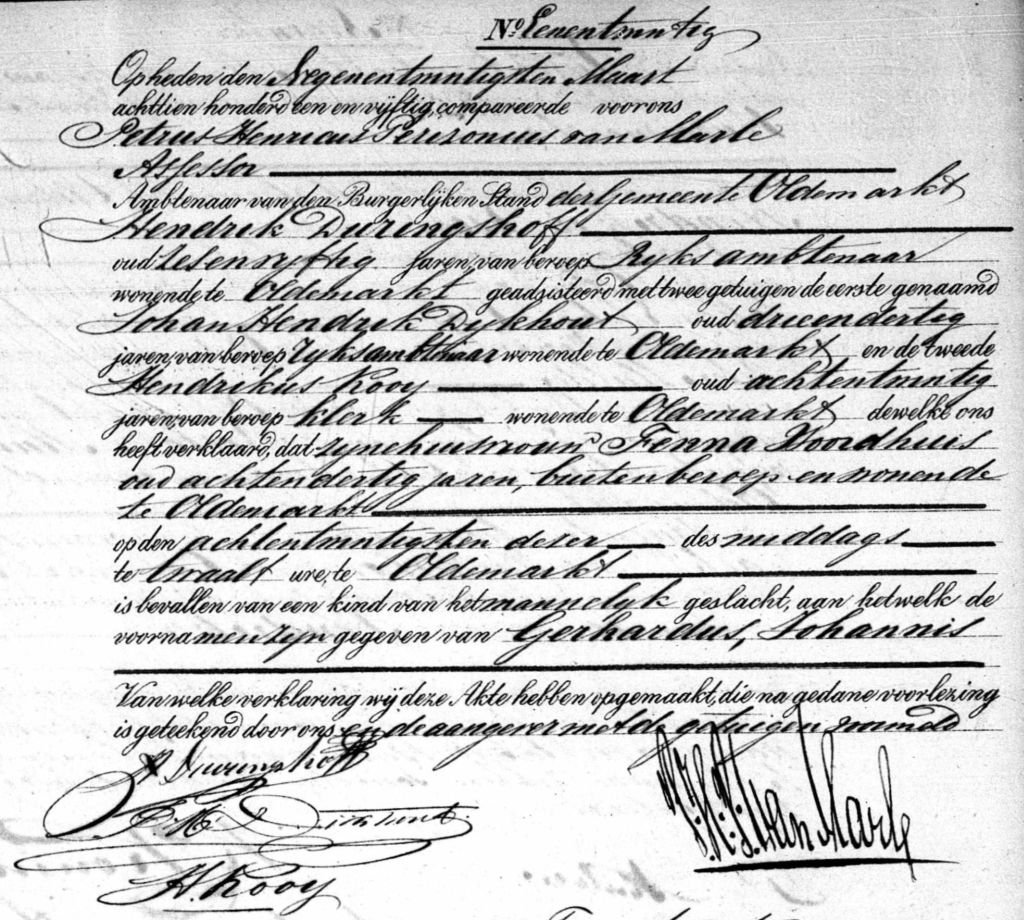 No Eenentwintig
Op heden den Negenentwintigsten Maart
achttien honderd een en vijftig, compareerde voor ons
Petrus Henricus Perizonius van Marle
Assessor
Ambtenaar van den Burgerlijken Stand der Gemeente Oldemarkt
Hendrik Duringshoff
oud zesenvyftig Jaren, van beroep Ryks ambtenaar
wonende te Oldemarkt geadsisteerd met twee getuigen de eerste genaamd
Johan Hendrik Dykhout oud drieendertig
jaren, van beroep ryksambtenaar wonende te Oldemarkt, en de tweede
Hendrikus Kooy oud achtentwintig
jaren, van beroep klerk wonende te Oldemarkt dewelke ons
heeft verklaard, dat zyne huisvrouw Fenna Noordhuis
oud achtendertig jaren, buiten beroep en wonende
te Oldemarkt
op den achtentwintigsten dezer des middags
te twaalf ure, te Oldemarkt
is bevallen van een kind van het mannelyk geslacht, aan hetwelk de
voornamen zyn gegeven van Gerhardus, Johannis
Van welke verklaring wij deze Akte hebben opgemaakt, die na gedane voorlezing
is geteekend door ons en de aangever met de getuigen
H Duringshoff
J. H. Dikhout
H. Kooy
P. H. P. van Marle